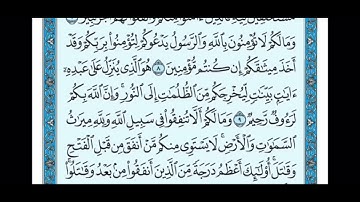 وَمَا لَكُمْ لَا تُؤْمِنُونَ بِاللَّهِ وَالرَّسُولُ يَدْعُوكُمْ لِتُؤْمِنُوا بِرَبِّكُمْ وَقَدْ
أَخَذَ مِيثَاقَكُمْ إِن كُنتُم مُّؤْمِنِينَ ٨ هُوَ الَّذِي يُنَزِّلُ عَلَىٰ عَبْدِهِ
ءَايَاتٍ بَيِّنَاتٍ لِّيُخْرِجَكُم مِّنَ الظُّلُمَاتِ إِلَى النُّورِ وَإِنَّ اللَّهَ بِكُمْ
لَرَءُوفٌ رَّحِيمٌ ٩ وَمَا لَكُمْ أَلَّا تُنفِقُوا فِي سَبِيلِ اللَّهِ وَلِلَّهِ مِيرَاثُ
السَّمَاوَاتِ وَالْأَرْضِ لَا يَسْتَوِي مِنكُم مَّنْ أَنفَقَ مِن قَبْلِ الْفَتْحِ
وَقَاتَلَ أُولَٰئِكَ أَعْظَمُ دَرَجَةً مِّنَ الَّذِينَ أَنفَقُوا مِن بَعْدُ وَقَاتَلُوا